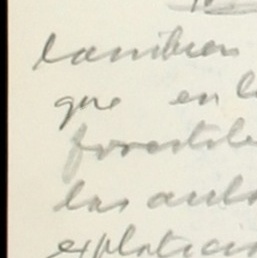 tambien
que en l
forestale
las auto
explotacio